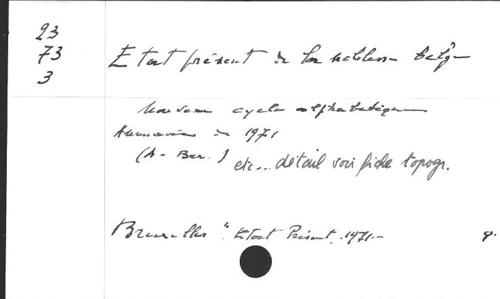 23
73
3
Etat présent de la noblesse belge
Nouveau cycle alphabétique
Annuaire de 1971
(A - Ber.) etc... détail voir fiche topogr.
Bruxelles "Etat Présent, 1971.-